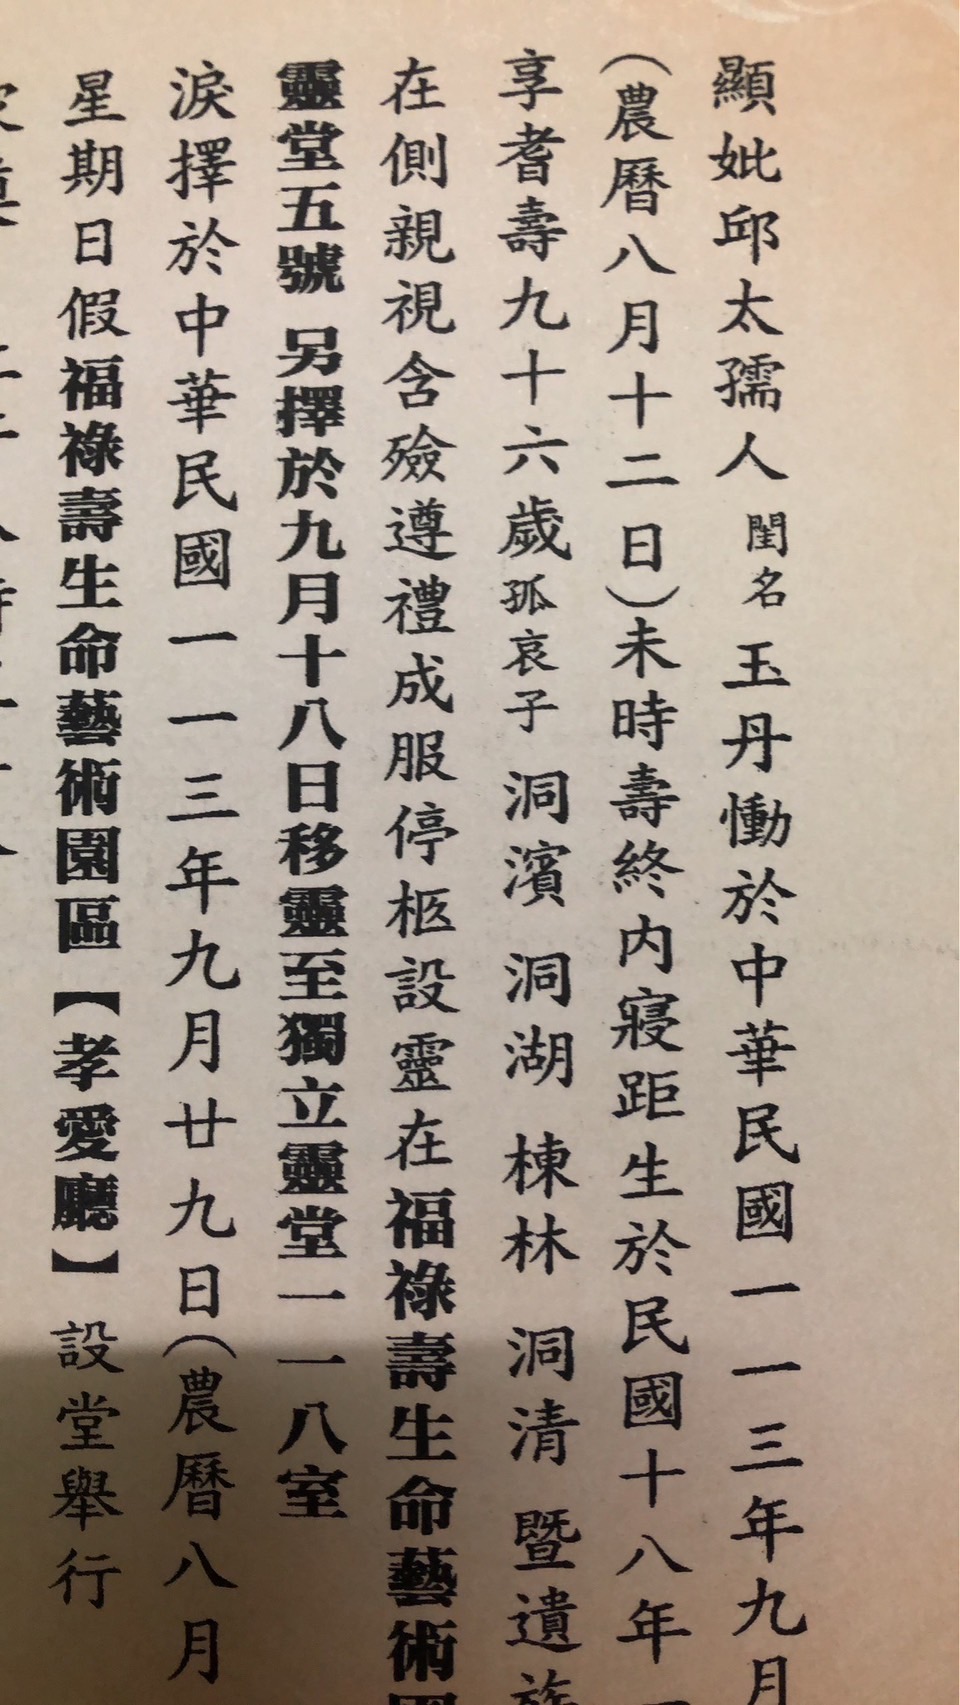 顯妣邱太孺人 閨名 玉丹慟於中華民國一一三年九月
(農曆八月十二日)未時壽終内寢距生於民國十八年
享耆壽九十六歲孤哀子 洞濱 洞湖 棟林 洞清 暨遺族
在側親視含殮遵禮成服停柩設靈在福祿壽生命藝術園
靈堂五號 另擇於九月十八日移靈至獨立靈堂一一八室
淚擇於中華民國一一三年九月廿九日(農曆八月
星期日假福祿壽生命藝術園區【孝愛廳】設堂舉行